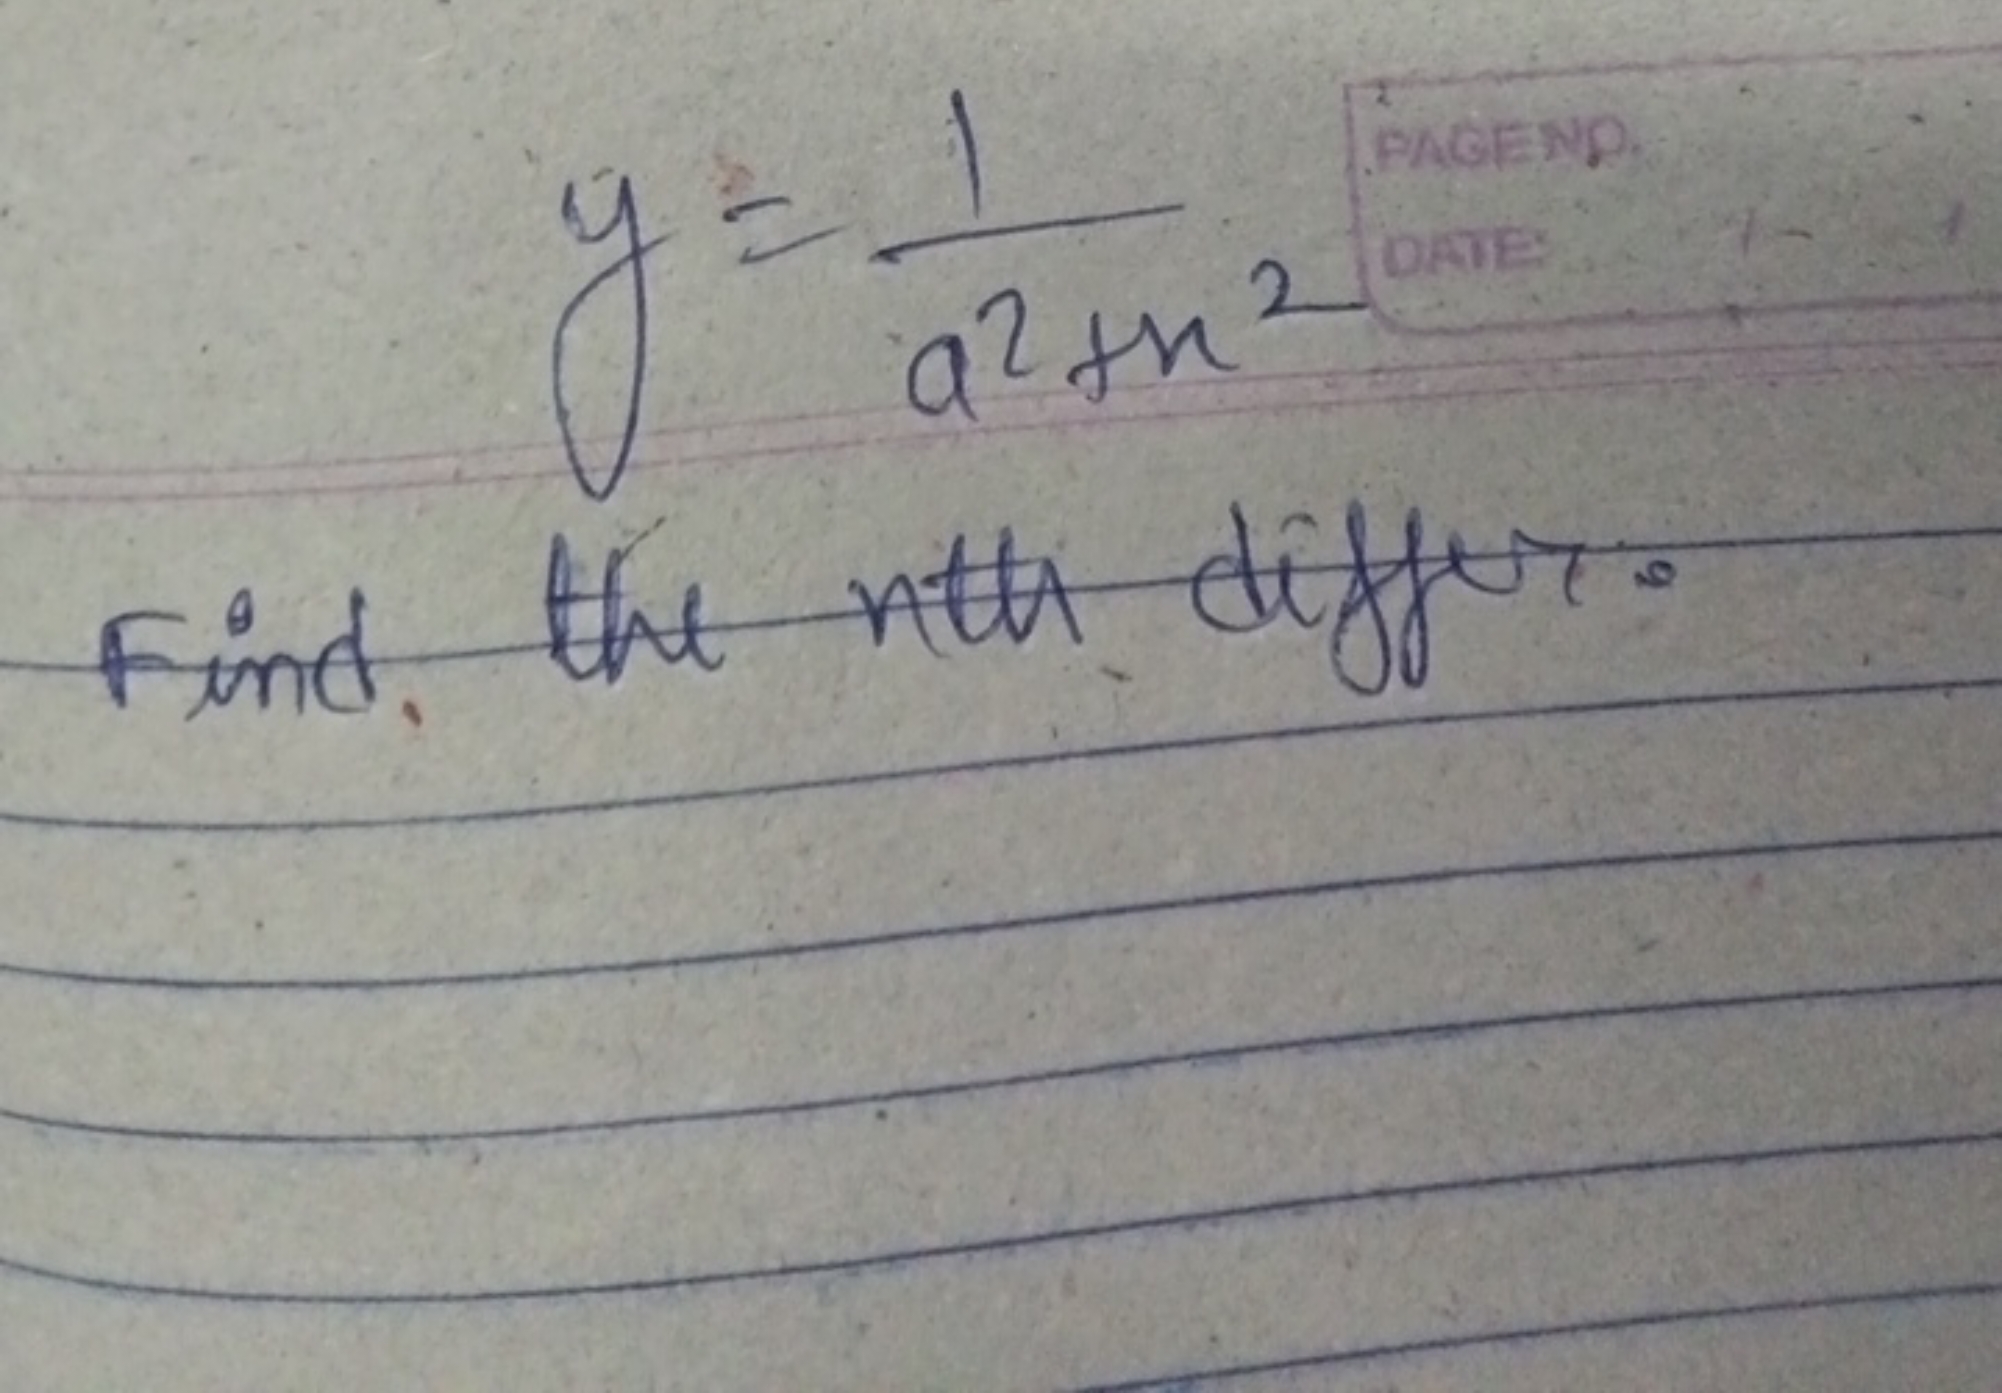 y = 1 / a² + x²
PAGE NO.
DATE: / /
Find the nth differ.